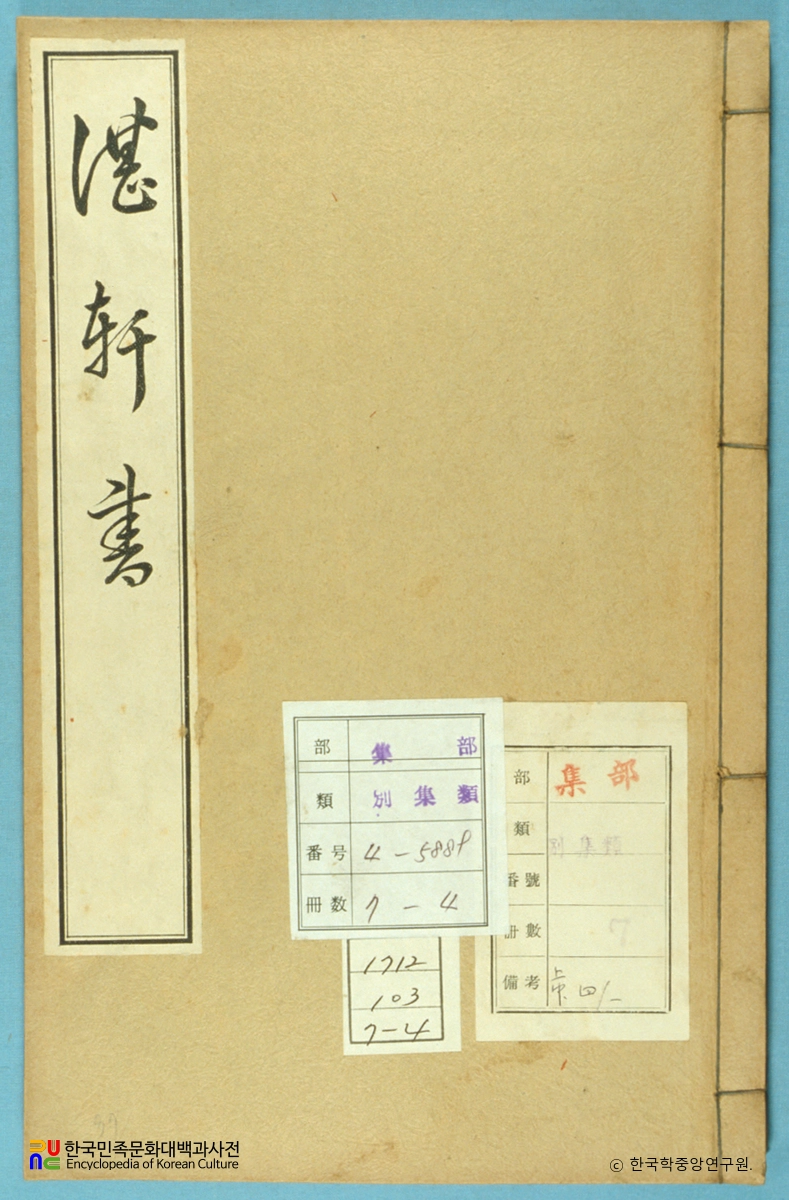 湛軒書
部 集部
類 別集類
番号 4-5889
冊数 7-4
1712
103
7-4
部 集部
類 別集類
番號
冊數 7
備考
한국민족문화대백과사전
Encyclopedia of Korean Culture
© 한국학중앙연구원.